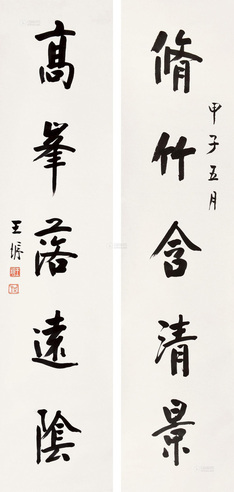 脩竹含清景
甲子五月
高峯落遠陰